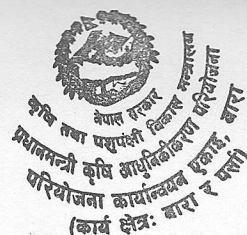 नेपाल सरकार
कृषि तथा पशुपंक्षी विकास मन्त्रालय
प्रधानमन्त्री कृषि आधुनिकीकरण परियोजना
परियोजना कार्यान्वयन एकाई, बारा
(कार्य क्षेत्रः बारा र पर्सा)